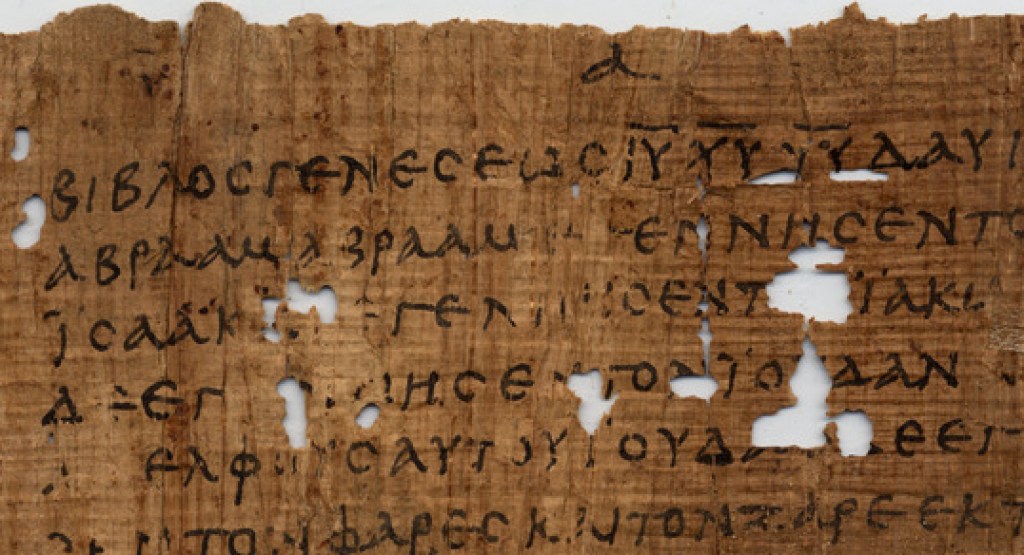 α
ΒΙΒΛΟϹΓΕΝΕϹΕΩϹ Ι̅Υ̅ Χ̅Υ̅ Υ̅Υ̅ ΔΑΥΙ
ΑΒΡΑΑΜ ΑΒΡΑΑΜ ΕΝΝΗϹΕΝΤΟ
ΪϹΑΑΚ ΓΕΝ ϹΕΝΤ ΪΑΚΩ
Δ ΕΓ ΝΗϹΕ ΤΟΝ ΪΟΥΔΑΝ
ΕΛΦ ϹΑΥΤΟΥ ΪΟΥΔΑ ΔΕΕΓ
ΕΝΤΟΝΦΑΡΕϹΚΑΙΤΟΝΖΑΡΕΕΚΤ